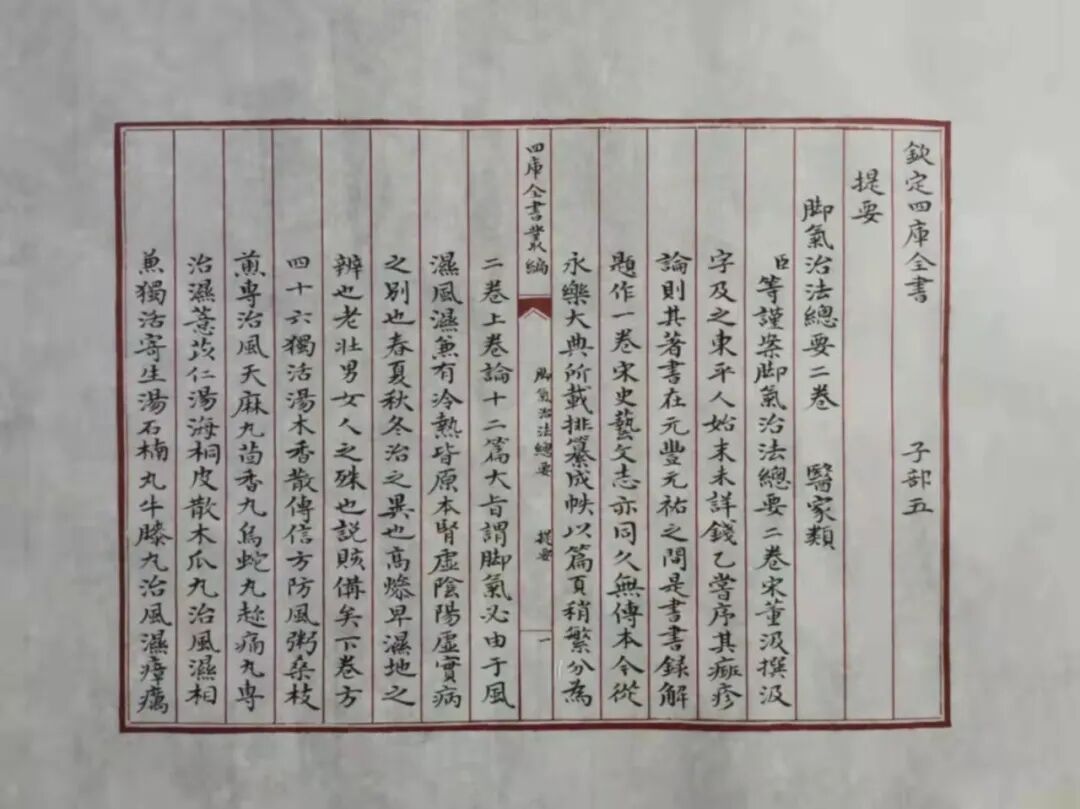 欽定四庫全書 子部五
提要 醫家類
脚氣治法總要二卷
臣等謹案脚氣治法總要二卷宋董汲撰汲
字及之東平人始末未詳錢乙嘗序其癍疹
論則其著書在元豐元祐之間是書書録解
題作一卷宋史藝文志亦同久無傳本今從
永樂大典所載排纂成帙以篇頁稍繁分為
四庫全書叢編 脚氣治法總要 提要 一
二卷上卷論十二篇大旨謂脚氣必由于風
濕風濕兼有冷熱皆原本腎虛陰陽虛實病
之别也春夏秋冬治之異也高燥卑濕地之
辨也老壯男女人之殊也説賅備矣下卷方
四十六獨活湯木香散傳信方防風粥桑枝
煎専治風天麻九茴香九烏蛇九趂痛九専
治濕薏苡仁湯海桐皮散木瓜九治風濕相
兼獨活寄生湯石楠丸牛膝九治風濕瘴癘